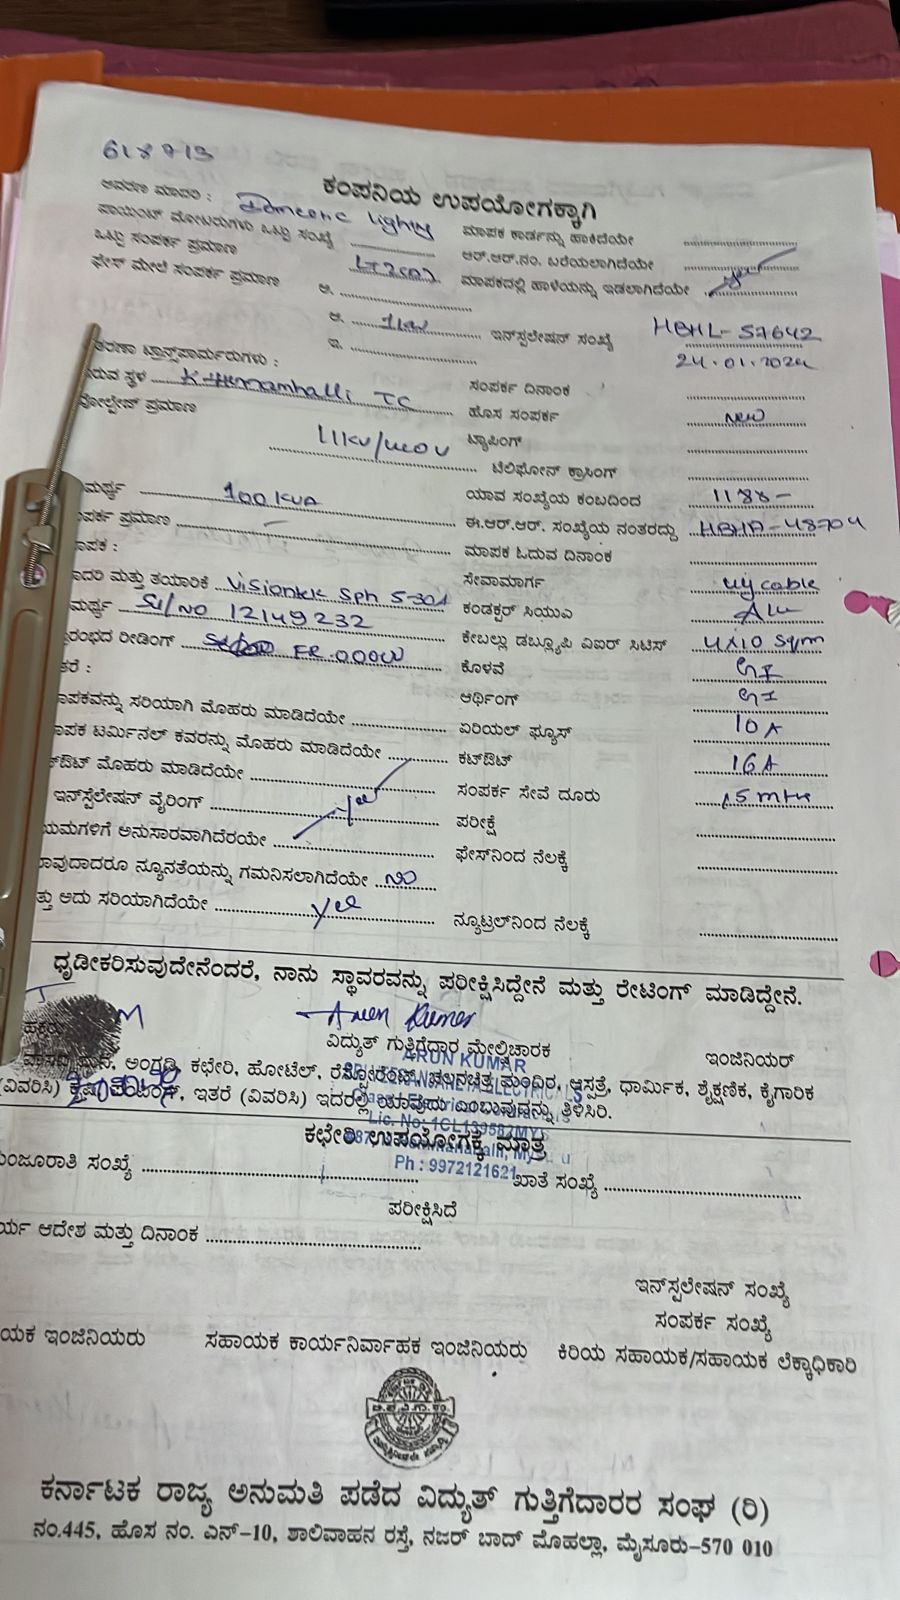 618713
ಕಂಪನಿಯ ಉಪಯೋಗಕ್ಕಾಗಿ
ಆವರಣ ಮಾದರಿ :
ಪಾಯಿಂಟ್ ಮೋಟರುಗಳು ಒಟ್ಟು ಸಂಖ್ಯೆ
ಮಾಪಕ ಕಾರ್ಡನ್ನು ಹಾಕಿದೆಯೇ
ಒಟ್ಟು ಸಂಪರ್ಕ ಪ್ರಮಾಣ
ಆರ್.ಆರ್.ನಂ. ಬರೆಯಲಾಗಿದೆಯೇ
ಫೇಸ್ ಮೇಲೆ ಸಂಪರ್ಕ ಪ್ರಮಾಣ ಅ.
ಮಾಪಕದಲ್ಲಿ ಹಾಳೆಯನ್ನು ಇಡಲಾಗಿದೆಯೇ yes
ಆ. 1kw ಇನ್‌ಸ್ಟಲೇಷನ್ ಸಂಖ್ಯೆ HBHL-57642
ಇ. 24.01.2024
ಟ್ರಾನ್ಸ್‌ಫಾರ್ಮರುಗಳು :
ಇರುವ ಸ್ಥಳ TC ಸಂಪರ್ಕ ದಿನಾಂಕ
ವೋಲ್ಟೇಜ್ ಪ್ರಮಾಣ ಹೊಸ ಸಂಪರ್ಕ New
11kv/400v ಟ್ಯಾಪಿಂಗ್
ಟೆಲಿಫೋನ್ ಕ್ರಾಸಿಂಗ್
100 KVA ಯಾವ ಸಂಖ್ಯೆಯ ಕಂಬದಿಂದ 1188-
ಪ್ರಮಾಣ - ಈ.ಆರ್.ಆರ್. ಸಂಖ್ಯೆಯ ನಂತರದ್ದು HBHP-48704
ಮಾಪಕ ಓದುವ ದಿನಾಂಕ
ಮತ್ತು ತಯಾರಿಕೆ Visiontek Sph 5-30A ಸೇವಾಮಾರ್ಗ ug cable
Sl/NO 12149232 ಕಂಡಕ್ಟರ್ ಸಿಯುಎ Alu
ರೀಡಿಂಗ್ FR.000 ಕೇಬಲ್ಲು ಡಬ್ಲ್ಯೂಪಿ ಎಐಆರ್ ಸಿಟಿಸ್ 4x10 sqm
ಕೊಳವೆ GI
ಸರಿಯಾಗಿ ಮೊಹರು ಮಾಡಿದೆಯೇ ಆರ್ಥಿಂಗ್ GI
ಟರ್ಮಿನಲ್ ಕವರನ್ನು ಮೊಹರು ಮಾಡಿದೆಯೇ ಏರಿಯಲ್ ಫ್ಯೂಸ್ 10A
ಮೊಹರು ಮಾಡಿದೆಯೇ ಕಟ್‌ಔಟ್ 16A
ಇನ್‌ಸ್ಟೆಲೇಷನ್ ವೈರಿಂಗ್ yes ಸಂಪರ್ಕ ಸೇವೆ ದೂರು 15mtr
ಅನುಸಾರವಾಗಿದೆರಯೇ ಪರೀಕ್ಷೆ
ಯಾವುದಾದರೂ ನ್ಯೂನತೆಯನ್ನು ಗಮನಿಸಲಾಗಿದೆಯೇ NO ಫೇಸ್‌ನಿಂದ ನೆಲಕ್ಕೆ
ಮತ್ತು ಅದು ಸರಿಯಾಗಿದೆಯೇ yes ನ್ಯೂಟ್ರಲ್‌ನಿಂದ ನೆಲಕ್ಕೆ
ಧೃಡೀಕರಿಸುವುದೇನೆಂದರೆ, ನಾನು ಸ್ಥಾವರವನ್ನು ಪರೀಕ್ಷಿಸಿದ್ದೇನೆ ಮತ್ತು ರೇಟಿಂಗ್ ಮಾಡಿದ್ದೇನೆ.
Arun Kumar
ವಿದ್ಯುತ್ ಗುತ್ತಿಗೆದಾರ ಮೇಲ್ವಿಚಾರಕ ಇಂಜಿನಿಯರ್
ARUN KUMAR
ಅಂಗಡಿ, ಕಛೇರಿ, ಹೋಟೆಲ್, ರೆಸ್ಟೋರೆಂಟ್, ಚಲನಚಿತ್ರ ಮಂದಿರ, ಆಸ್ಪತ್ರೆ, ಧಾರ್ಮಿಕ, ಶೈಕ್ಷಣಿಕ, ಕೈಗಾರಿಕ
ELECTRICALS
(ವಿವರಿಸಿ) ಇತರೆ (ವಿವರಿಸಿ) ಇದರಲ್ಲಿ ಯಾವುದು ಎಂಬುವುದನ್ನು ತಿಳಿಸಿರಿ.
Lic. No: 1CL139587MYS
ಕಛೇರಿ ಉಪಯೋಗಕ್ಕೆ ಮಾತ್ರ
Ph : 9972121621
ಮಂಜೂರಾತಿ ಸಂಖ್ಯೆ ಖಾತೆ ಸಂಖ್ಯೆ
ಪರೀಕ್ಷಿಸಿದೆ
ಆದೇಶ ಮತ್ತು ದಿನಾಂಕ
ಇನ್‌ಸ್ಟಲೇಷನ್ ಸಂಖ್ಯೆ
ಸಂಪರ್ಕ ಸಂಖ್ಯೆ
ಇಂಜಿನಿಯರು ಸಹಾಯಕ ಕಾರ್ಯನಿರ್ವಾಹಕ ಇಂಜಿನಿಯರು ಕಿರಿಯ ಸಹಾಯಕ/ಸಹಾಯಕ ಲೆಕ್ಕಾಧಿಕಾರಿ
ಕರ್ನಾಟಕ ರಾಜ್ಯ ಅನುಮತಿ ಪಡೆದ ವಿದ್ಯುತ್ ಗುತ್ತಿಗೆದಾರರ ಸಂಘ (ರಿ)
ನಂ.445, ಹೊಸ ನಂ. ಎನ್-10, ಶಾಲಿವಾಹನ ರಸ್ತೆ, ನಜರ್ ಬಾದ್ ಮೊಹಲ್ಲಾ, ಮೈಸೂರು-570 010